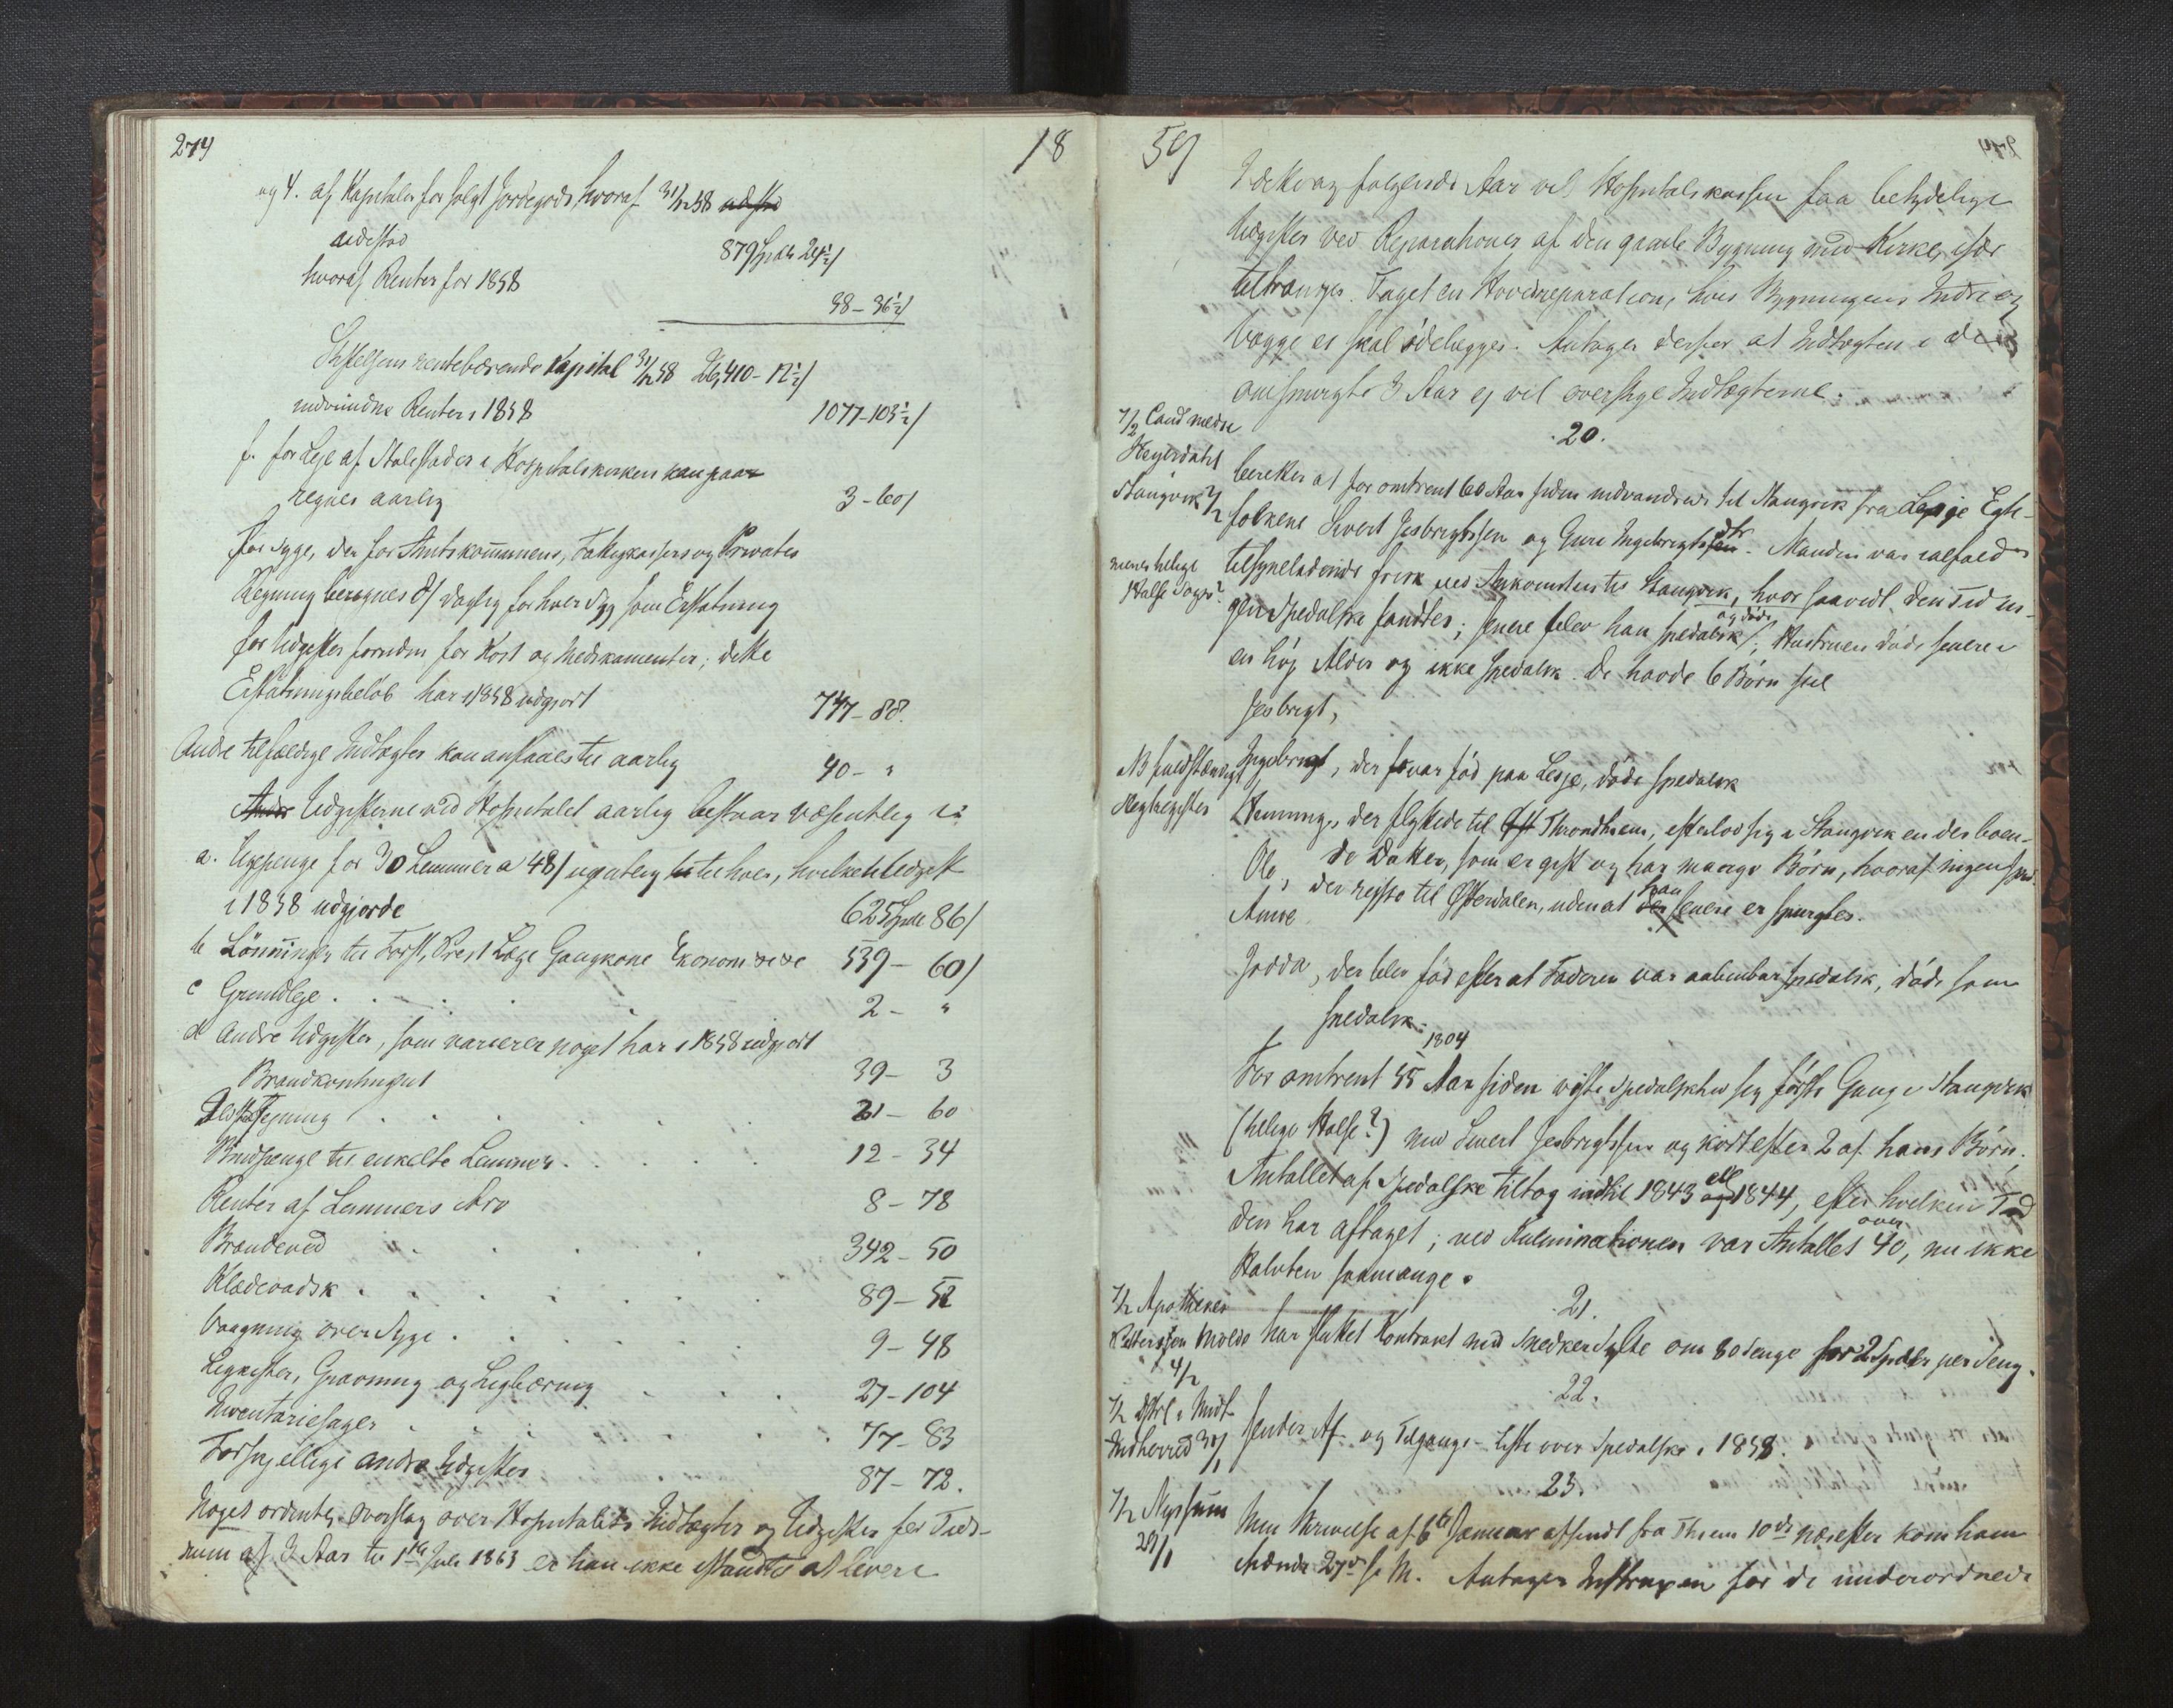 274
18
og 4. af Kapitaler for solgt Jordegods, hvoraf 31/12 58
udestod 879 Spdlr 24½ /
hvoraf Renter for 1858
38 - 36½ /
Stiftelsens rentebærende Kapital 31/12 58 26,410 - 12½ /
indvundne Renter i 1858 1077 - 103½ /
f. for Leje af Stolestader i Hospitalskirken kan paa-
regnes aarlig 3 - 60 /
For Syge, der for Amtskommunens, Fattigkassers og Privates
Regning beregnes 8 / daglig for hver Syg som Erstatning
for Udgifter foruden for Kost og Medikamenter; dette
Erstatningsbeløb har i 1858 udgjort 747 - 88.
Andre tilfældige Indtægter kan ansaaes til aarlig 40 - "
Andre Udgifterne ved Hospitalet aarlig bestaar væsentlig i:
a. Ugepenge for 30 Lemmer a 48 / ugentlig til hver, hvilken Udgift
i 1858 udgjorde 625 Spdlr 86 /
b Lønninger til Forst, Præst Læge Gangkone Økonom &c &c 539 - 60 /
c Grundleje . . . . 2 - "
d Andre Udgifter, som varierer noget har i 1858 udgjort
Brandkontingent 39 - 3
21 - 60
Brødpenge til enkelte Lemmer . . . . 12 - 34
Renter af Lemmers Arv 8 - 78
Brændeved . . . . 342 - 50
Klædevadsk . . . . 89 - 52
Vaagning over Syge . . . . 9 - 48
Ligkister, Gravning og Ligbæring . . . 27 - 104
Inventariesager . . . . 77 - 83
Forskjellige andre Udgifter 87 - 72.
Noget ordentlig Overslag over Hospitalets Indtægter og Udgifter for Tids-
rum af 3 Aar til 1ste Juli 1863 er han ikke istand til at levere
59
I dette og følgende Aar vil Hospitalskassen faa betydelige
Udgifter ved Reparationer af den gamle Bygning med Kirke, især
tiltrænges Taget en Hovedreparation, hvis Bygningens Indre og
Vægge ei skal ødelægges. Antager derfor at Indtægten i de
omspurgte 3 Aar ej vil overstige Indtægterne.
7/2 Cand med
Heyerdahl
Stangvik 2/2
20.
beretter at for omtrent 60 Aar siden indvandrede til Stangvik fra Lesje Egte-
folkene Sivert Jesbrigtssen og Guri Ingebrigtsdtr. Manden var ialfald
menes helige
Halse Sogn?
tilsyneladende frisk ved Ankomsten til Stangvik, hvor saavidt den Tid in-
gen Spedalske fandtes; senere blev han spedalsk og døde; Hustruen døde senere i
en høj Alder og ikke spedalsk. De havde 6 Børn
Jesbrigt,
NB fuldstændigt
Slegtregister
Ingebrigt, der var fød paa Lesje, døde spedalsk
Hemming, der flyttede til Throndhjem, efterlod sig i Stangvik en der boen-
de Datter, som er gift og har mange Børn, hvoraf ingen sped.
Ole, der reiste til Østerdalen, uden at han senere er spurgtes.
Anne
Jodda, der blev fød efter at Faderen var aabenbar spedalsk, døde som
spedalsk.
1804
For omtrent 55 Aar siden viste Spedalskhed sig første Gang i Stangvik
(helige Halse?) med Sivert Jesbrigtssen og kort efter 2 af hans Børn.
Antallet af Spedalske tiltog indtil 1843 ell 1844, efter hvilken Tid
den har aftaget; ved Kulminationen var Antallet over 40, nu ikke
Halvten saamange.
7/2 Apotheker
Moldo 4/2
21.
har sluttet Kontrakt med Snedker Sylte om 80 Senge for 2 Spdlr per Seng.
7/2 Distrl i Nord
Indherred 31/1
22.
sender Af- og Tilgangs-Liste over Spedalske i 1858.
7/2
29/1
23.
Min Skrivelse af 6te Januar afsendt fra Thiem 10de næstefter kom ham
ihænde 27de s. M. Antager Instruxen for de underordnede